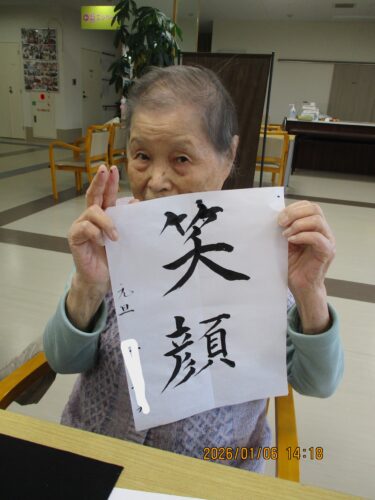 笑顔
元旦
2026/01/06 14:18